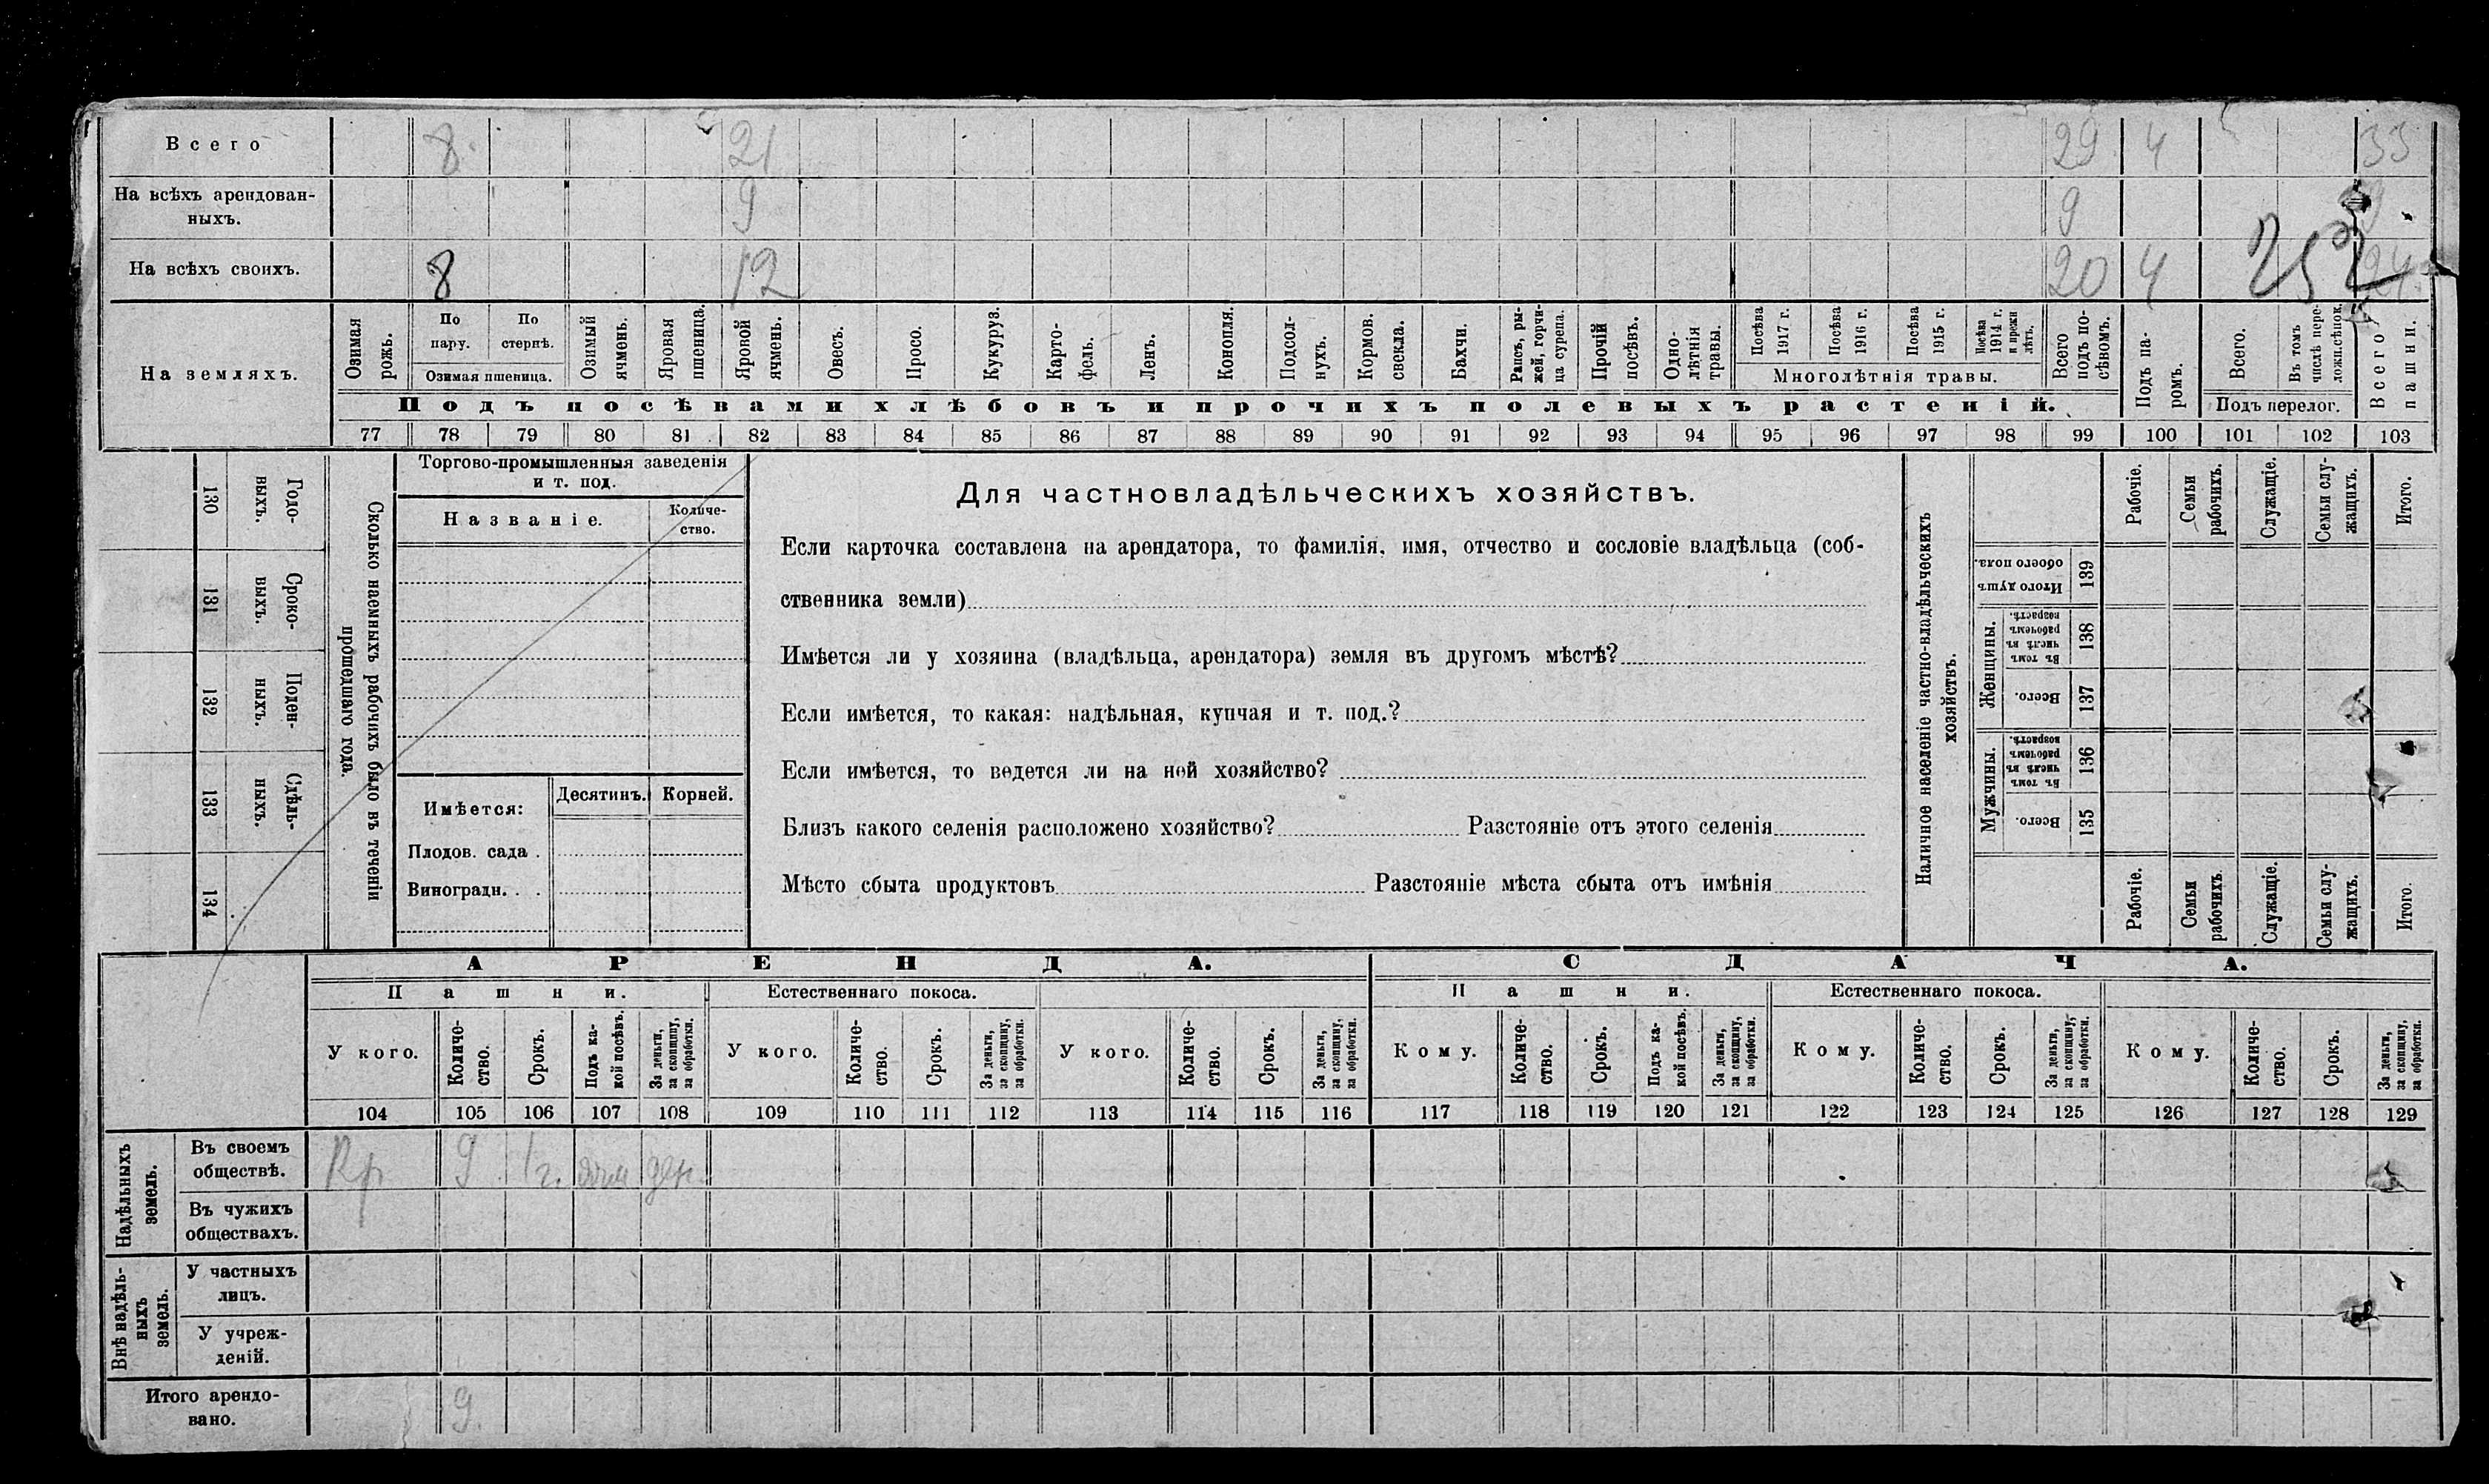 Всего 8 21 29 4 33
На всѣхъ арендован-
ныхъ. 9 9 9
На всѣхъ своихъ. 8 12 20 4 24
252
На земляхъ.
Озимая рожь.
По пару.
По стернѣ.
Озимая пшеница.
Озимый ячмень.
Яровая пшеница.
Яровой ячмень.
Овесъ.
Просо.
Кукуруз.
Карто-
фель.
Ленъ.
Конопля.
Подсол-
нухъ.
Кормов.
свекла.
Бахчи.
Рапсъ, ры-
жей, горчи-
ца сурепа.
Прочій
посѣвъ.
Одно-
лѣтнія
травы.
Посѣва
1917 г.
Посѣва
1916 г.
Посѣва
1915 г.
Посѣва
1914 г.
и прежн
лѣтъ.
Многолѣтнія травы.
Всего
подъ по-
сѣвомъ.
Подъ па-
ромъ.
Всего.
Въ томъ
числѣ пере-
ложн.сѣнок.
Подъ перелог.
Всего
пашни.
Подъ посѣвами хлѣбовъ и прочихъ полевыхъ растеній.
77 78 79 80 81 82 83 84 85 86 87 88 89 90 91 92 93 94 95 96 97 98 99 100 101 102 103
130 Годо-
ныхъ.
131 Сроко-
выхъ.
132 Поден-
ныхъ.
133 Сдѣль-
ныхъ.
134
Сколько наемныхъ рабочихъ было въ теченіи
прошедшаго года.
Торгово-промышленныя заведенія
и т. под.
Названіе.
Количе-
ство.
Имѣется:
Десятинъ.
Корней.
Плодов. сада .
Виноградн. . .
Для частновладѣльческихъ хозяйствъ.
Если карточка составлена на арендатора, то фамилія, имя, отчество и сословіе владѣльца (соб-
ственника земли)
Имѣется ли у хозяина (владѣльца, арендатора) земля въ другомъ мѣстѣ?
Если имѣется, то какая: надѣльная, купчая и т. под.?
Если имѣется, то ведется ли на ней хозяйство?
Близъ какого селенія расположено хозяйство? Разстояніе отъ этого селенія
Мѣсто сбыта продуктовъ Разстояніе мѣста сбыта отъ имѣнія
Наличное населеніе частно-владѣльческихъ
хозяйствъ.
Рабочіе.
Семьи
рабочихъ.
Служащіе.
Семьи слу-
жащихъ.
Итого.
Итого душъ
обоего пола.
139
Женщины.
Въ томъ
числѣ въ
рабочемъ
возрастѣ.
138
Всего.
137
Мужчины.
Въ томъ
числѣ въ
рабочемъ
возрастѣ.
136
Всего.
135
Рабочіе.
Семьи
рабочихъ.
Служащіе.
Семьи слу-
жащихъ.
Итого.
АРЕНДА. СДАЧА.
Пашни. Естественнаго покоса. Пашни. Естественнаго покоса.
У кого.
Количе-
ство.
Срокъ.
Подъ ка-
кой посѣвъ.
За деньги,
за скопщину,
за обработки.
У кого.
Количе-
ство.
Срокъ.
За деньги,
за скопщину,
за обработки.
У кого.
Количе-
ство.
Срокъ.
За деньги,
за скопщину,
за обработки.
Кому.
Количе-
ство.
Срокъ.
Подъ ка-
кой посѣвъ.
За деньги,
за скопщину,
за обработки.
Кому.
Количе-
ство.
Срокъ.
За деньги,
за скопщину,
за обработки.
Кому.
Количе-
ство.
Срокъ.
За деньги,
за скопщину,
за обработки.
104 105 106 107 108 109 110 111 112 113 114 115 116 117 118 119 120 121 122 123 124 125 126 127 128 129
Надѣльныхъ
земель.
Въ своемъ
обществѣ. Кр 9 1г. ячм ден.
Въ чужихъ
обществахъ.
Внѣ надѣль-
ныхъ
земель.
У частныхъ
лицъ.
У учреж-
деній.
Итого арендо-
вано. 9.